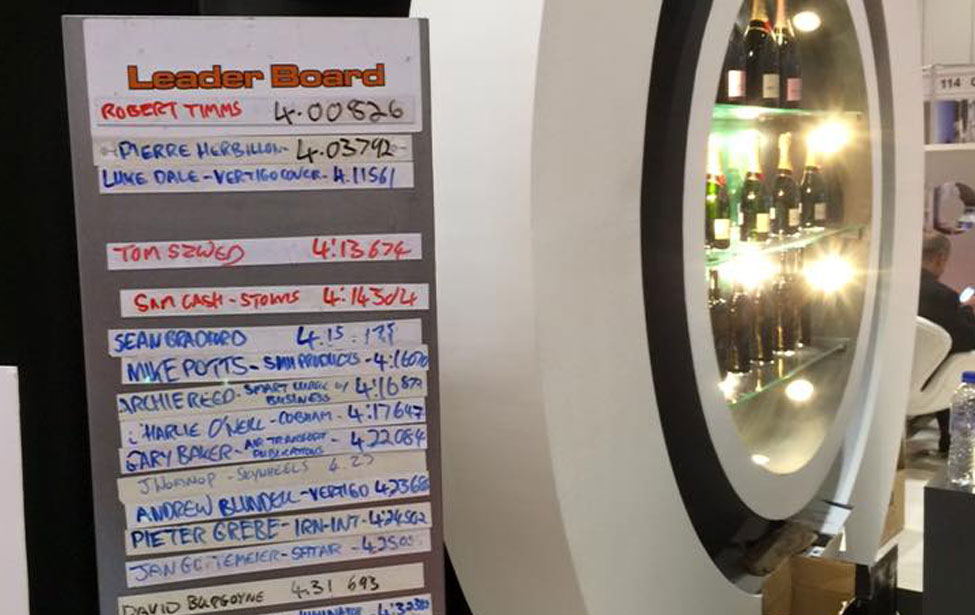 Leader Board
ROBERT TIMMS 4.00826
PIERRE HERBILLON- 4.03792
LUKE DALE - VERTIGO COVER - 4.11561
TOM SZWED 4:13674
SAM CASH - STORMS 4:14
SEAN BRADFORD 4.15
MIKE POTTS - SMH PRODUCTS - 4:16070
ARCHIE REED - SMART 4:16879
BUSINESS
HARLIE O'NEILL - COBHAM - 4:17647
GARY BAKER - AIR TRANSPORT PUBLICATIONS - 4.22084
SKYWHEELS 4.23
ANDREW BLUNDELL - VERTIGO 4.2368
PIETER GREBE - IRN-INT - 4:24562
SATAIR - 4.250
DAVID BURGOYNE 4.31 693
4:32
114